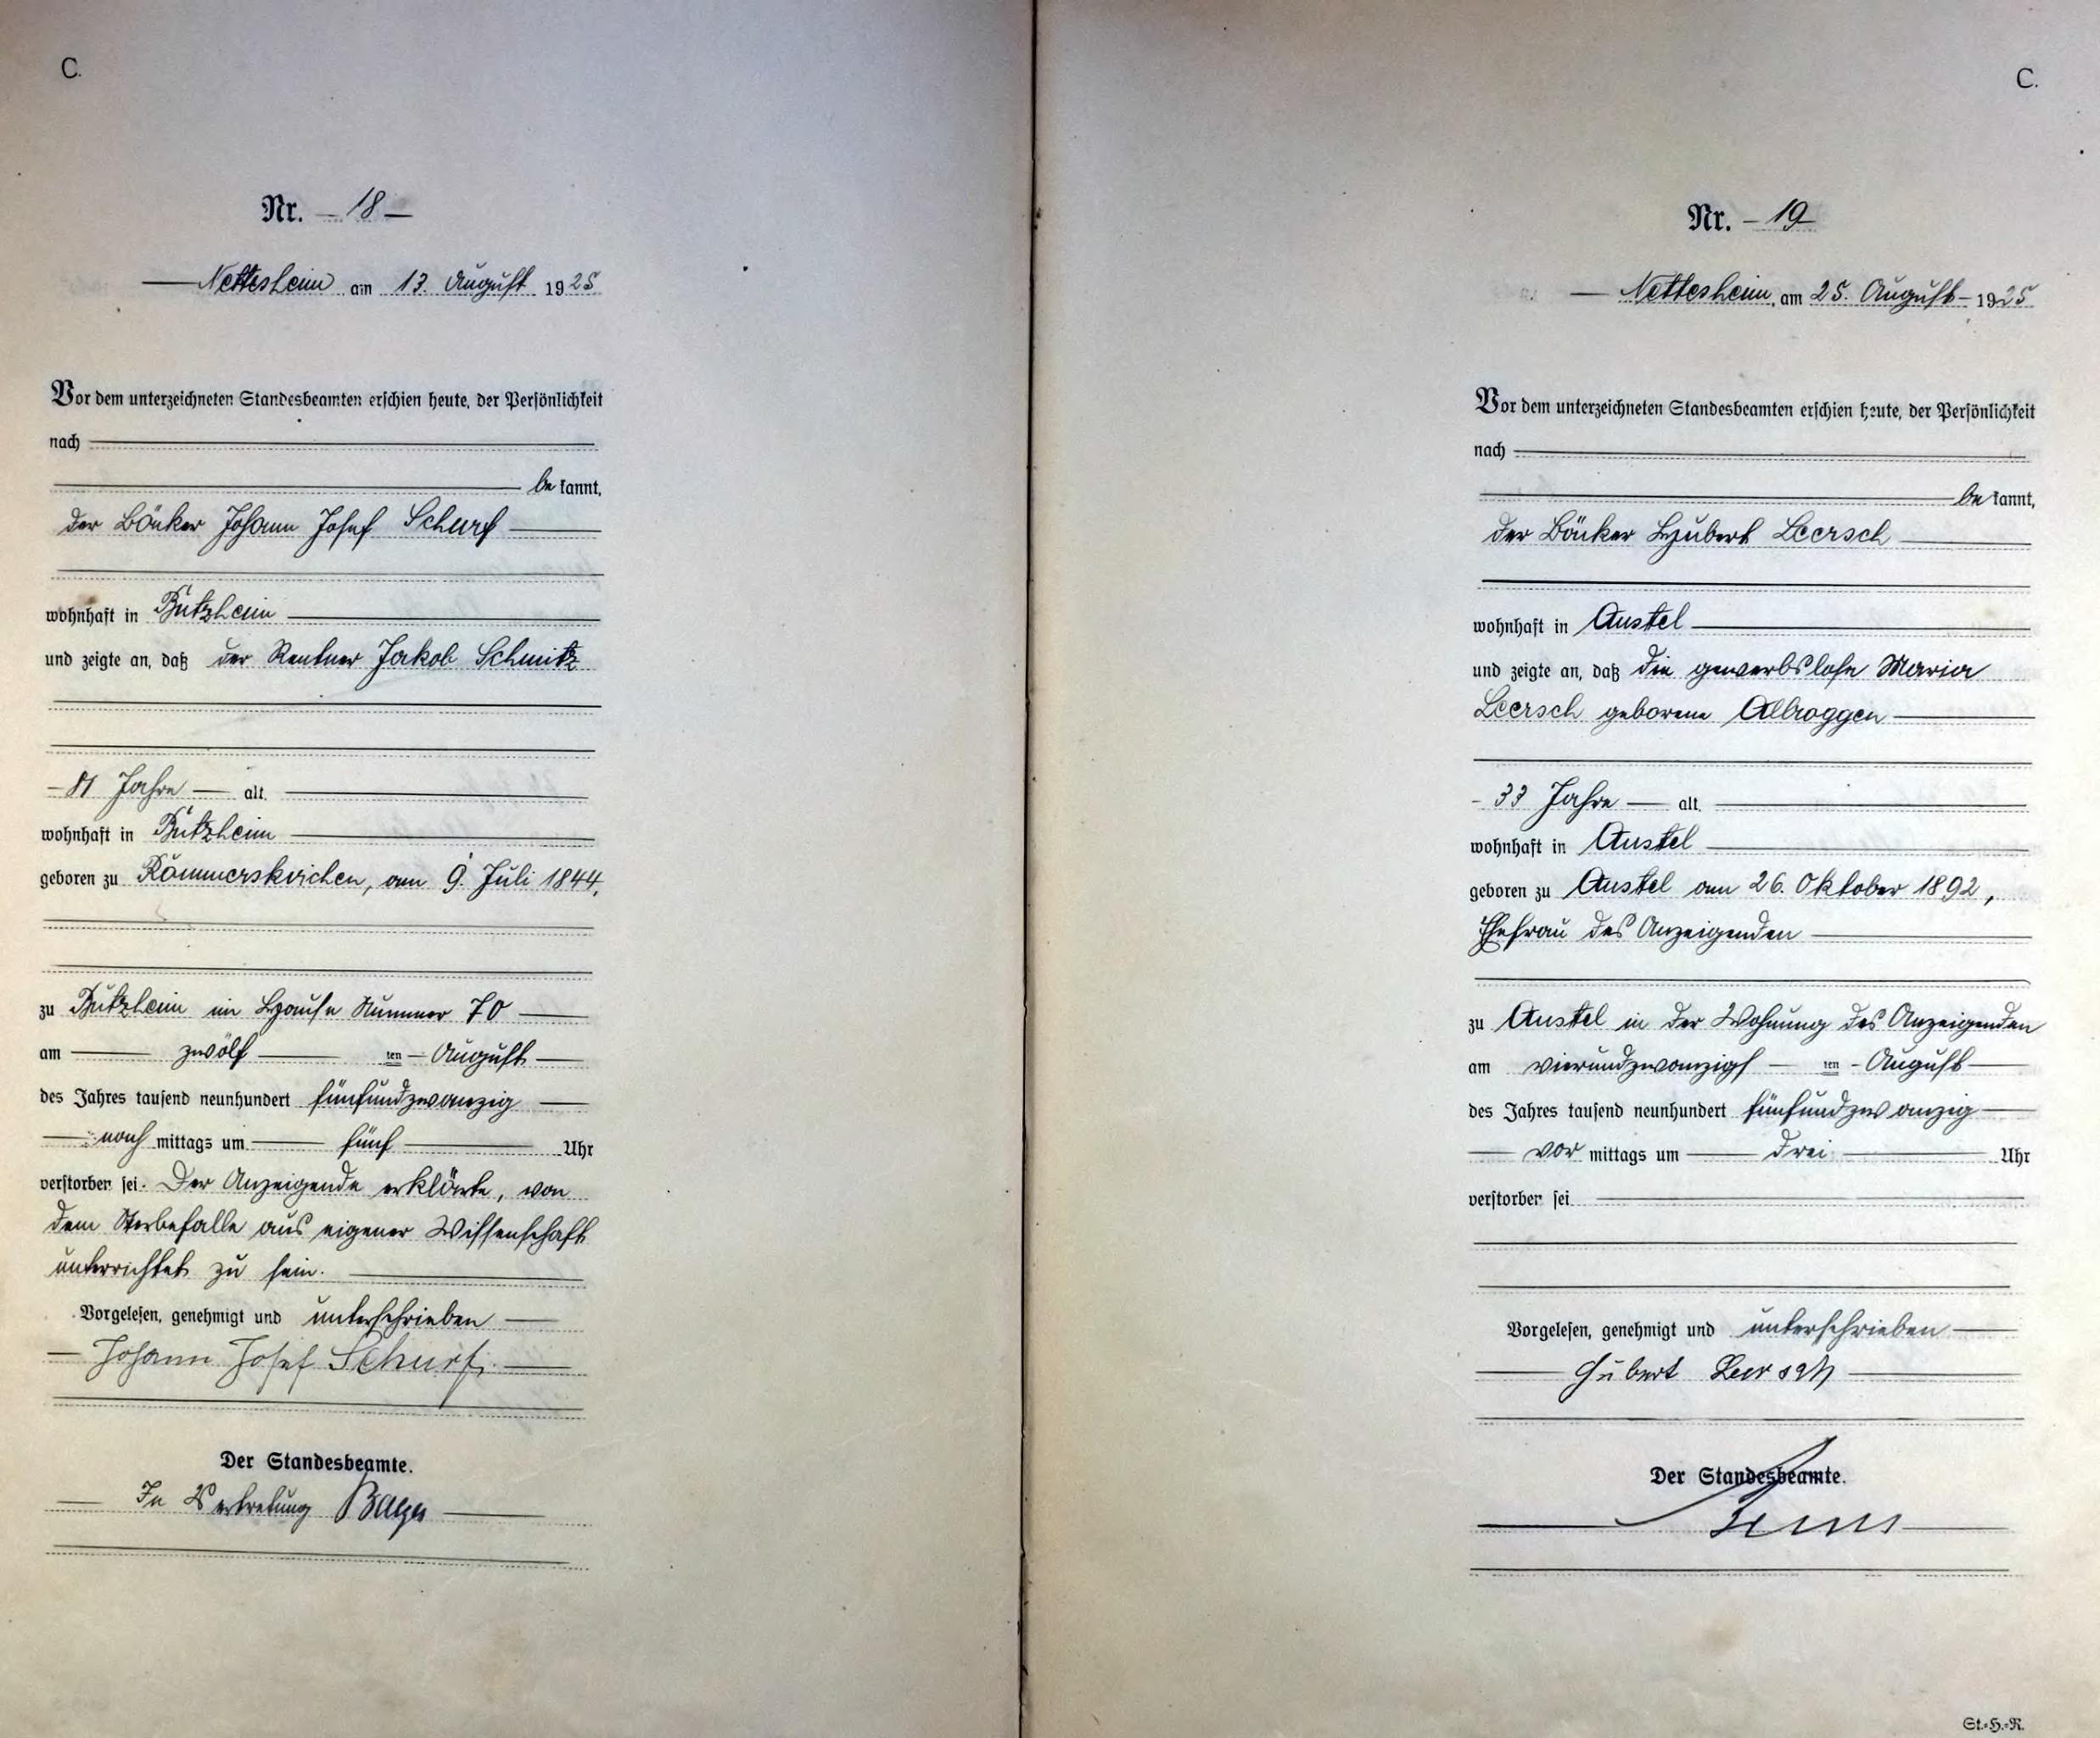 C.
Nr. — 18 —
— Nettesheim am 13. August 1925
Vor dem unterzeichneten Standesbeamten erschien heute, der Persönlichkeit
nach
be kannt,
der Bäcker Johann Josef Schurf
wohnhaft in Butzheim
und zeigte an, daß der Rentner Jakob Schmitz
- 81 Jahre — alt,
wohnhaft in Butzheim
geboren zu Rommerskirchen, am 9. Juli 1844,
zu Butzheim im Hause Nummer 70
am — zwölf — ten — August —
des Jahres tausend neunhundert fünfundzwanzig
— nach mittags um — fünf — Uhr
verstorben sei. Der Anzeigende erklärte, von
dem Sterbefalle aus eigener Wissenschaft
unterrichtet zu sein.
Vorgelesen, genehmigt und unterschrieben
— Johann Josef Schurf. —
Der Standesbeamte.
In Vertretung
C.
Nr. — 19
— Nettesheim, am 25. August — 1925
Vor dem unterzeichneten Standesbeamten erschien heute, der Persönlichkeit
nach
be kannt,
der Bäcker Hubert Leersch
wohnhaft in Anstel
und zeigte an, daß die gewerbslose Maria
Leersch geborene Albroggen
- 33 Jahre — alt,
wohnhaft in Anstel
geboren zu Anstel am 26. Oktober 1892,
Ehefrau des Anzeigenden
zu Anstel in der Wohnung des Anzeigenden
am vierundzwanzigs — ten - August —
des Jahres tausend neunhundert fünfundzwanzig
— vor mittags um — drei — Uhr
verstorben sei
Vorgelesen, genehmigt und unterschrieben
— Hubert Leersch —
Der Standesbeamte.
St.-H.-R.